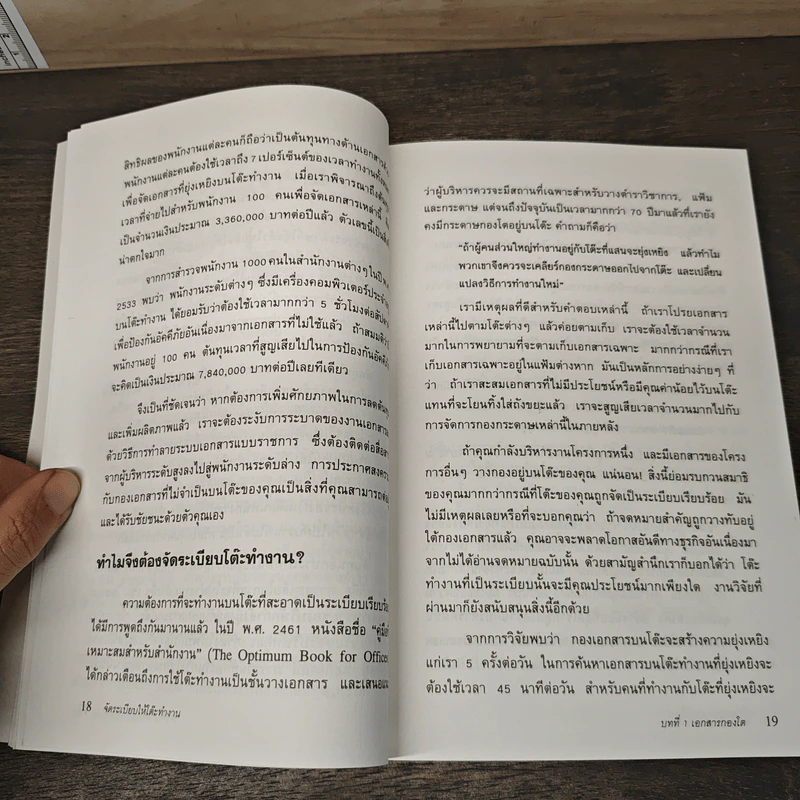 สิทธิผลของพนักงานแต่ละคนก็ถือว่าเป็นต้นทุนทางด้านเอกสาร
พนักงานแต่ละคนต้องใช้เวลาถึง 7 เปอร์เซ็นต์ของเวลาทำงาน
เพื่อจัดเอกสารที่ยุ่งเหยิงบนโต๊ะทำงาน เมื่อเราพิจารณาถึง
เวลาที่จ่ายไปสำหรับพนักงาน 100 คนเพื่อจัดเอกสารเหล่านี้
เป็นจำนวนเงินประมาณ 3,360,000 บาทต่อปีแล้ว ตัวเลขนี้เป็น
น่าตกใจมาก
จากการสำรวจพนักงาน 1000 คนในสำนักงานต่างๆ ในปี
2533 พบว่า พนักงานระดับต่างๆ ซึ่งมีเครื่องคอมพิวเตอร์ประจำ
บนโต๊ะทำงาน ได้ยอมรับว่าต้องใช้เวลามากกว่า 5 ชั่วโมงต่อ
เพื่อป้องกันอัคคีภัยอันเนื่องมาจากเอกสารที่ไม่ใช้แล้ว ถ้าสมมติ
พนักงานอยู่ 100 คน ต้นทุนเวลาที่สูญเสียไปในการป้องกันอัคคี
จะคิดเป็นเงินประมาณ 7,840,000 บาทต่อปีเลยทีเดียว
จึงเป็นที่ชัดเจนว่า หากต้องการเพิ่มศักยภาพในการลด
และเพิ่มผลิตภาพแล้ว เราจะต้องระงับการระบาดของงานเอกสาร
ด้วยวิธีการทำลายระบบเอกสารแบบราชการ ซึ่งต้องติดต่อ
จากผู้บริหารระดับสูงลงไปสู่พนักงานระดับล่าง การประกาศ
กับกองเอกสารที่ไม่จำเป็นบนโต๊ะของคุณเป็นสิ่งที่คุณสามารถ
และได้รับชัยชนะด้วยตัวคุณเอง
ทำไมจึงต้องจัดระเบียบโต๊ะทำงาน?
ความต้องการที่จะทำงานบนโต๊ะที่สะอาดเป็นระเบียบเรียบร้อย
ได้มีการพูดถึงกันมานานแล้ว ในปี พ.ศ. 2461 หนังสือชื่อ
เหมาะสมสำหรับสำนักงาน” (The Optimum Book for Offices
ได้กล่าวเตือนถึงการใช้โต๊ะทำงานเป็นชั้นวางเอกสาร และเสนอ
18 จัดระเบียบให้โต๊ะทำงาน
ว่าผู้บริหารควรจะมีสถานที่เฉพาะสำหรับวางตำราวิชาการ, แฟ้ม
และกระดาษ แต่จนถึงปัจจุบันเป็นเวลามากกว่า 70 ปีมาแล้วที่เรายัง
คงมีกระดาษกองโตอยู่บนโต๊ะ คำถามก็คือว่า
“ถ้าผู้คนส่วนใหญ่ทำงานอยู่กับโต๊ะที่แสนจะยุ่งเหยิง แล้วทำไม
พวกเขาจึงควรจะเคลียร์กองกระดาษออกไปจากโต๊ะ และเปลี่ยน
แปลงวิธีการทำงานใหม่”
เรามีเหตุผลที่ดีสำหรับคำตอบเหล่านี้ ถ้าเราโปรยเอกสาร
เหล่านี้ไปตามโต๊ะต่างๆ แล้วค่อยตามเก็บ เราจะต้องใช้เวลาจำนวน
มากในการพยายามที่จะตามเก็บเอกสารเฉพาะ มากกว่ากรณีที่เรา
เก็บเอกสารเฉพาะอยู่ในแฟ้มต่างหาก มันเป็นหลักการอย่างง่ายๆ ที่
ว่า ถ้าเราสะสมเอกสารที่ไม่มีประโยชน์หรือมีคุณค่าน้อยไว้บนโต๊ะ
แทนที่จะโยนทิ้งใส่ถังขยะแล้ว เราจะสูญเสียเวลาจำนวนมากไปกับ
การจัดการกองกระดาษเหล่านี้ในภายหลัง
ถ้าคุณกำลังบริหารงานโครงการหนึ่ง และมีเอกสารของโครง
การอื่นๆ วางกองอยู่บนโต๊ะของคุณ แน่นอน! สิ่งนี้ย่อมรบกวนสมาธิ
ของคุณมากกว่ากรณีที่โต๊ะของคุณถูกจัดเป็นระเบียบเรียบร้อย มัน
ไม่มีเหตุผลเลยหรือที่จะบอกคุณว่า ถ้าจดหมายสำคัญถูกวางทับอยู่
ใต้กองเอกสารแล้ว คุณอาจจะพลาดโอกาสอันดีทางธุรกิจอันเนื่องมา
จากไม่ได้อ่านจดหมายฉบับนั้น ด้วยสามัญสำนึกเราก็บอกได้ว่า โต๊ะ
ทำงานที่เป็นระเบียบนั้นจะมีคุณประโยชน์มากเพียงใด งานวิจัยที่
ผ่านมาก็ยังสนับสนุนสิ่งนี้อีกด้วย
จากการวิจัยพบว่า กองเอกสารบนโต๊ะจะสร้างความยุ่งเหยิง
แก่เรา 5 ครั้งต่อวัน ในการค้นหาเอกสารบนโต๊ะทำงานที่ยุ่งเหยิงจะ
ต้องใช้เวลา 45 นาทีต่อวัน สำหรับคนที่ทำงานกับโต๊ะที่ยุ่งเหยิงจะ
บทที่ 1 เอกสารกองโต 19